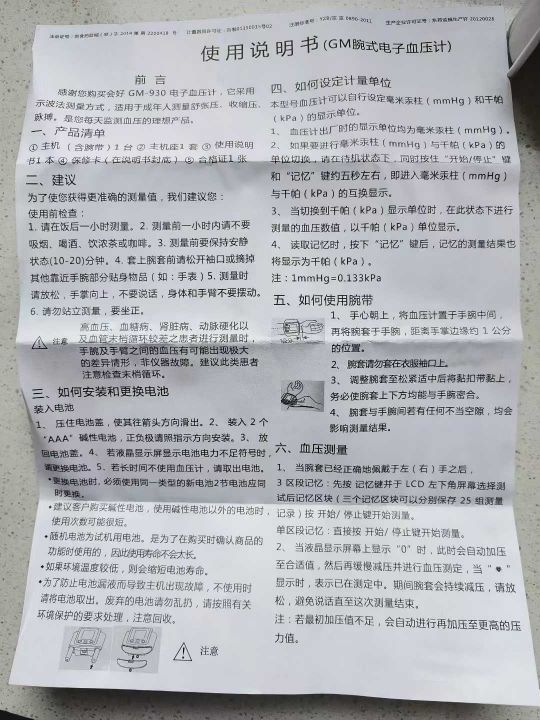 使用说明书(GM腕式电子血压计)
前 言
感谢您购买会好 GM-930 电子血压计，它采用
示波法测量方式，适用于成年人测量舒张压、收缩压、
脉搏。是您每天监测血压的理想产品。
一、产品清单
① 主机（含腕带）1 台 ② 主机座1 套 ③ 使用说明
书1 本 ④ 保修卡（在说明书封底） ⑤ 合格证1 张
二、建议
为了使您获得更准确的测量值，我们建议您：
使用前检查：
1. 请在饭后一小时测量。2. 测量前一小时内请不要
吸烟、喝酒、饮浓茶或咖啡。3. 测量前要保持安静
状态(10-20)分钟。4. 套上腕套前请松开袖口或摘掉
其他靠近手腕部分贴身物品（如：手表）5. 测量时
请放松，手掌向上，不要说话，身体和手臂不要摆动。
6. 请勿站立测量，要坐正。
注意
高血压、血糖病、肾脏病、动脉硬化以
及血管末梢循环较差之患者进行测量时，
手腕及手臂之间的血压有可能出现极大
的差异情形，非仪器故障。建议此类患者
注意检查末梢循环。
三、如何安装和更换电池
装入电池
1、 压住电池盖，使其往箭头方向滑出。2、 装入 2 个
"AAA" 碱性电池，正负极请照指示方向安装。3、 放
回电池盖。4、 若液晶显示屏显示电池电力不足符号时，
请更换电池。5、若长时间不使用血压计，请取出电池。
•更换电池时，必须使用同一类型的新电池2节电池应同
时更换。
•建议客户购买碱性电池，使用碱性电池以外的电池时，
使用次数可能很短。
•随机电池为试机用电池。是为了在购买时确认商品的
功能时使用的，因此使用寿命不会太长。
•如果环境温度较低，则会缩短电池寿命。
•为了防止电池漏液而导致主机出现故障，不使用时
请将电池取出。废弃的电池请勿乱扔，请按照有关
环境保护的要求处理，注意回收。
注意
四、如何设定计量单位
本型号血压计可以自行设定毫米汞柱（mmHg）和千帕
（kPa）的显示单位。
1、 血压计出厂时的显示单位均为毫米汞柱（mmHg）。
2、 如果要进行毫米汞柱（mmHg）与千帕（kPa）的
单位切换，请在待机状态下，同时按住"开始/停止"键
和"记忆"键约五秒左右，即进入毫米汞柱（mmHg）
与千帕（kPa）的互换显示。
3、 当切换到千帕（kPa）显示单位时，在此状态下进行
测量的血压数值，以千帕（kPa）单位显示。
4、 读取记忆时，按下"记忆"键后，记忆的测量结果也
将显示为千帕（kPa）。
注：1mmHg=0.133kPa
五、如何使用腕带
1、 手心朝上，将血压计置于手腕中间，
再将腕套于手腕，距离手掌边缘约 1 公分
的位置。
2、 腕套请勿套在衣服袖口上。
3、 调整腕套至松紧适中后将黏扣带黏上，
务必使腕套上下方均能与手腕密合。
4、 腕套与手腕间若有任何不当空隙，均会
影响测量结果。
六、血压测量
1、 当腕套已经正确地佩戴于左（右）手之后，
3 区段记忆：先按 记忆键并于 LCD 左下角屏幕选择测
试后记忆区块（三个记忆区块可以分别保存 25 组测量
记录）按 开始/ 停止键开始测量。
单区段记忆：直接按 开始/ 停止键开始测量。
2、 当液晶显示屏幕上显示 "0" 时，此时会自动加压
至合适值，然后再缓慢减压并进行血压测定，当 "♥"
显示时，表示已在测定中。期间腕套会持续减压，请放
松，避免说话直至这次测量结束。
注：若最初加压值不足，会自动进行再加压至更高的压
力值。